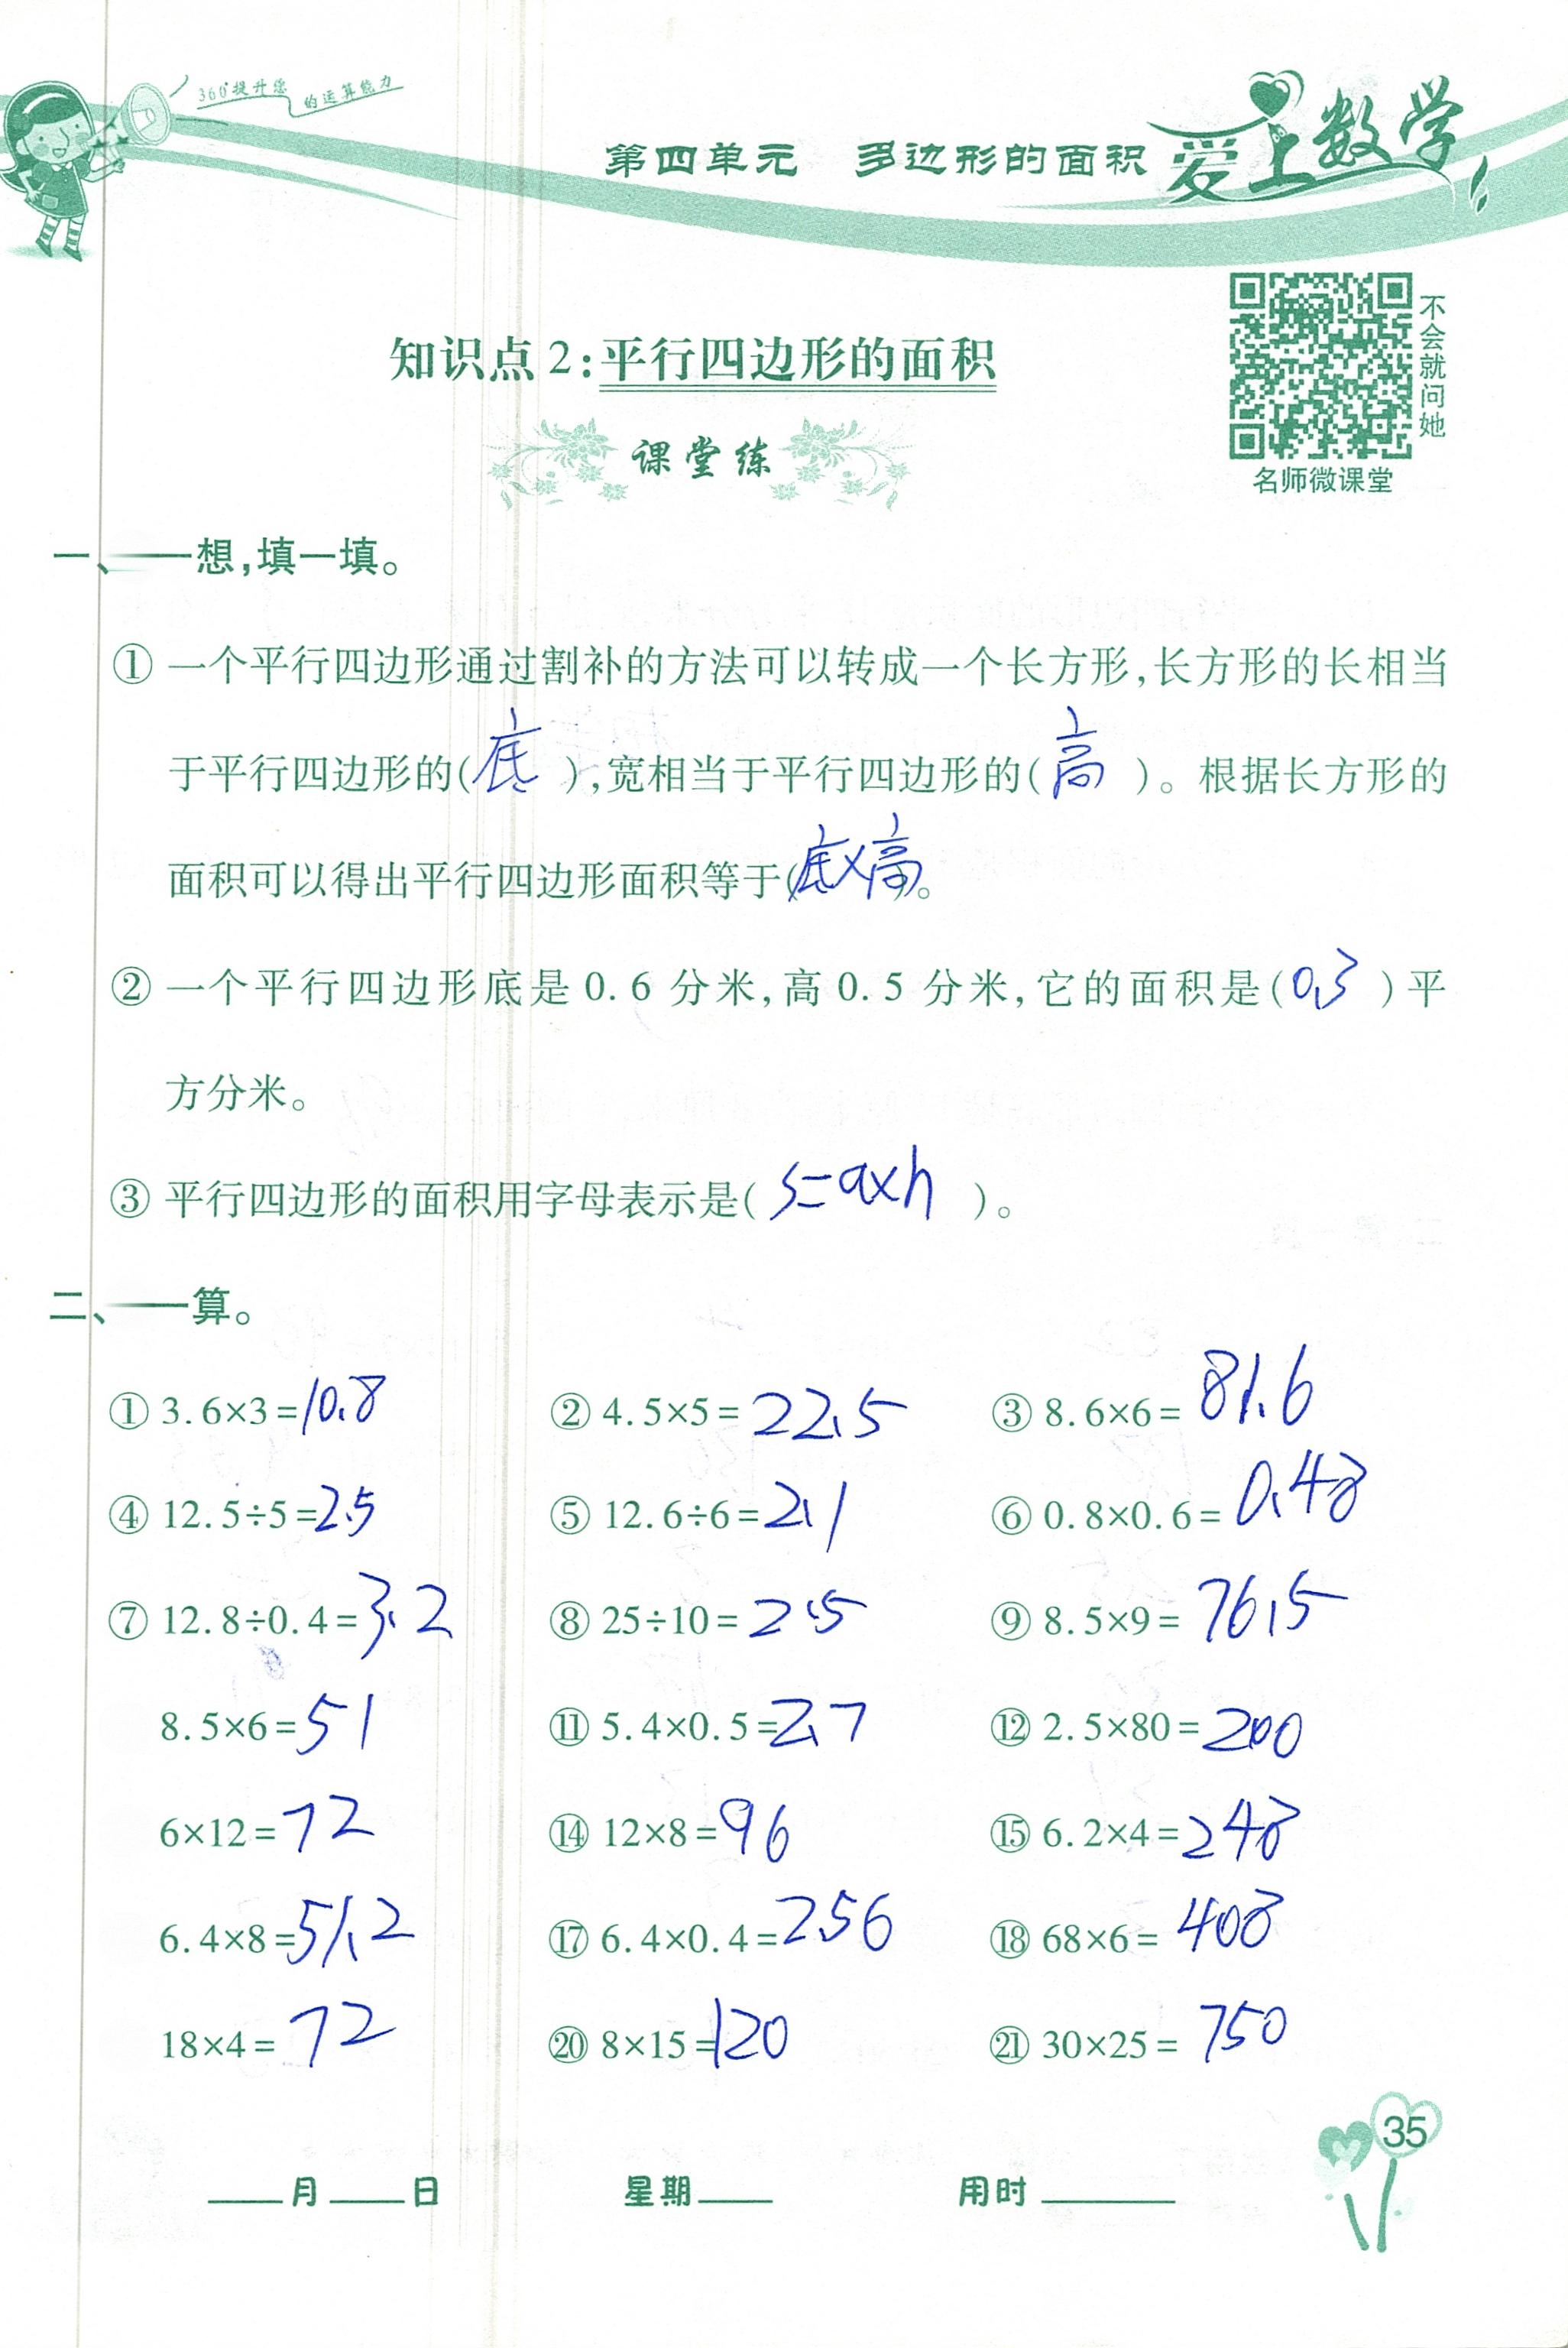 360°提升您的运算能力
第四单元 多边形的面积 爱上数学
不会就问她
名师微课堂
知识点2:平行四边形的面积
课堂练
一、一想,填一填。
① 一个平行四边形通过割补的方法可以转成一个长方形,长方形的长相当
于平行四边形的(底),宽相当于平行四边形的(高)。根据长方形的
面积可以得出平行四边形面积等于(底×高)。
② 一个平行四边形底是0.6分米,高0.5分米,它的面积是(0.3)平
方分米。
③ 平行四边形的面积用字母表示是(S=a×h)。
二、一算。
① 3.6×3=10.8 ② 4.5×5=22.5 ③ 8.6×6=81.6
④ 12.5÷5=2.5 ⑤ 12.6÷6=2.1 ⑥ 0.8×0.6=0.48
⑦ 12.8÷0.4=3.2 ⑧ 25÷10=2.5 ⑨ 8.5×9=76.5
8.5×6=51 ⑪ 5.4×0.5=2.7 ⑫ 2.5×80=200
6×12=72 ⑭ 12×8=96 ⑮ 6.2×4=248
6.4×8=51.2 ⑰ 6.4×0.4=2.56 ⑱ 68×6=408
18×4=72 ⑳ 8×15=120 ㉑ 30×25=750
35
月 日 星期 用时